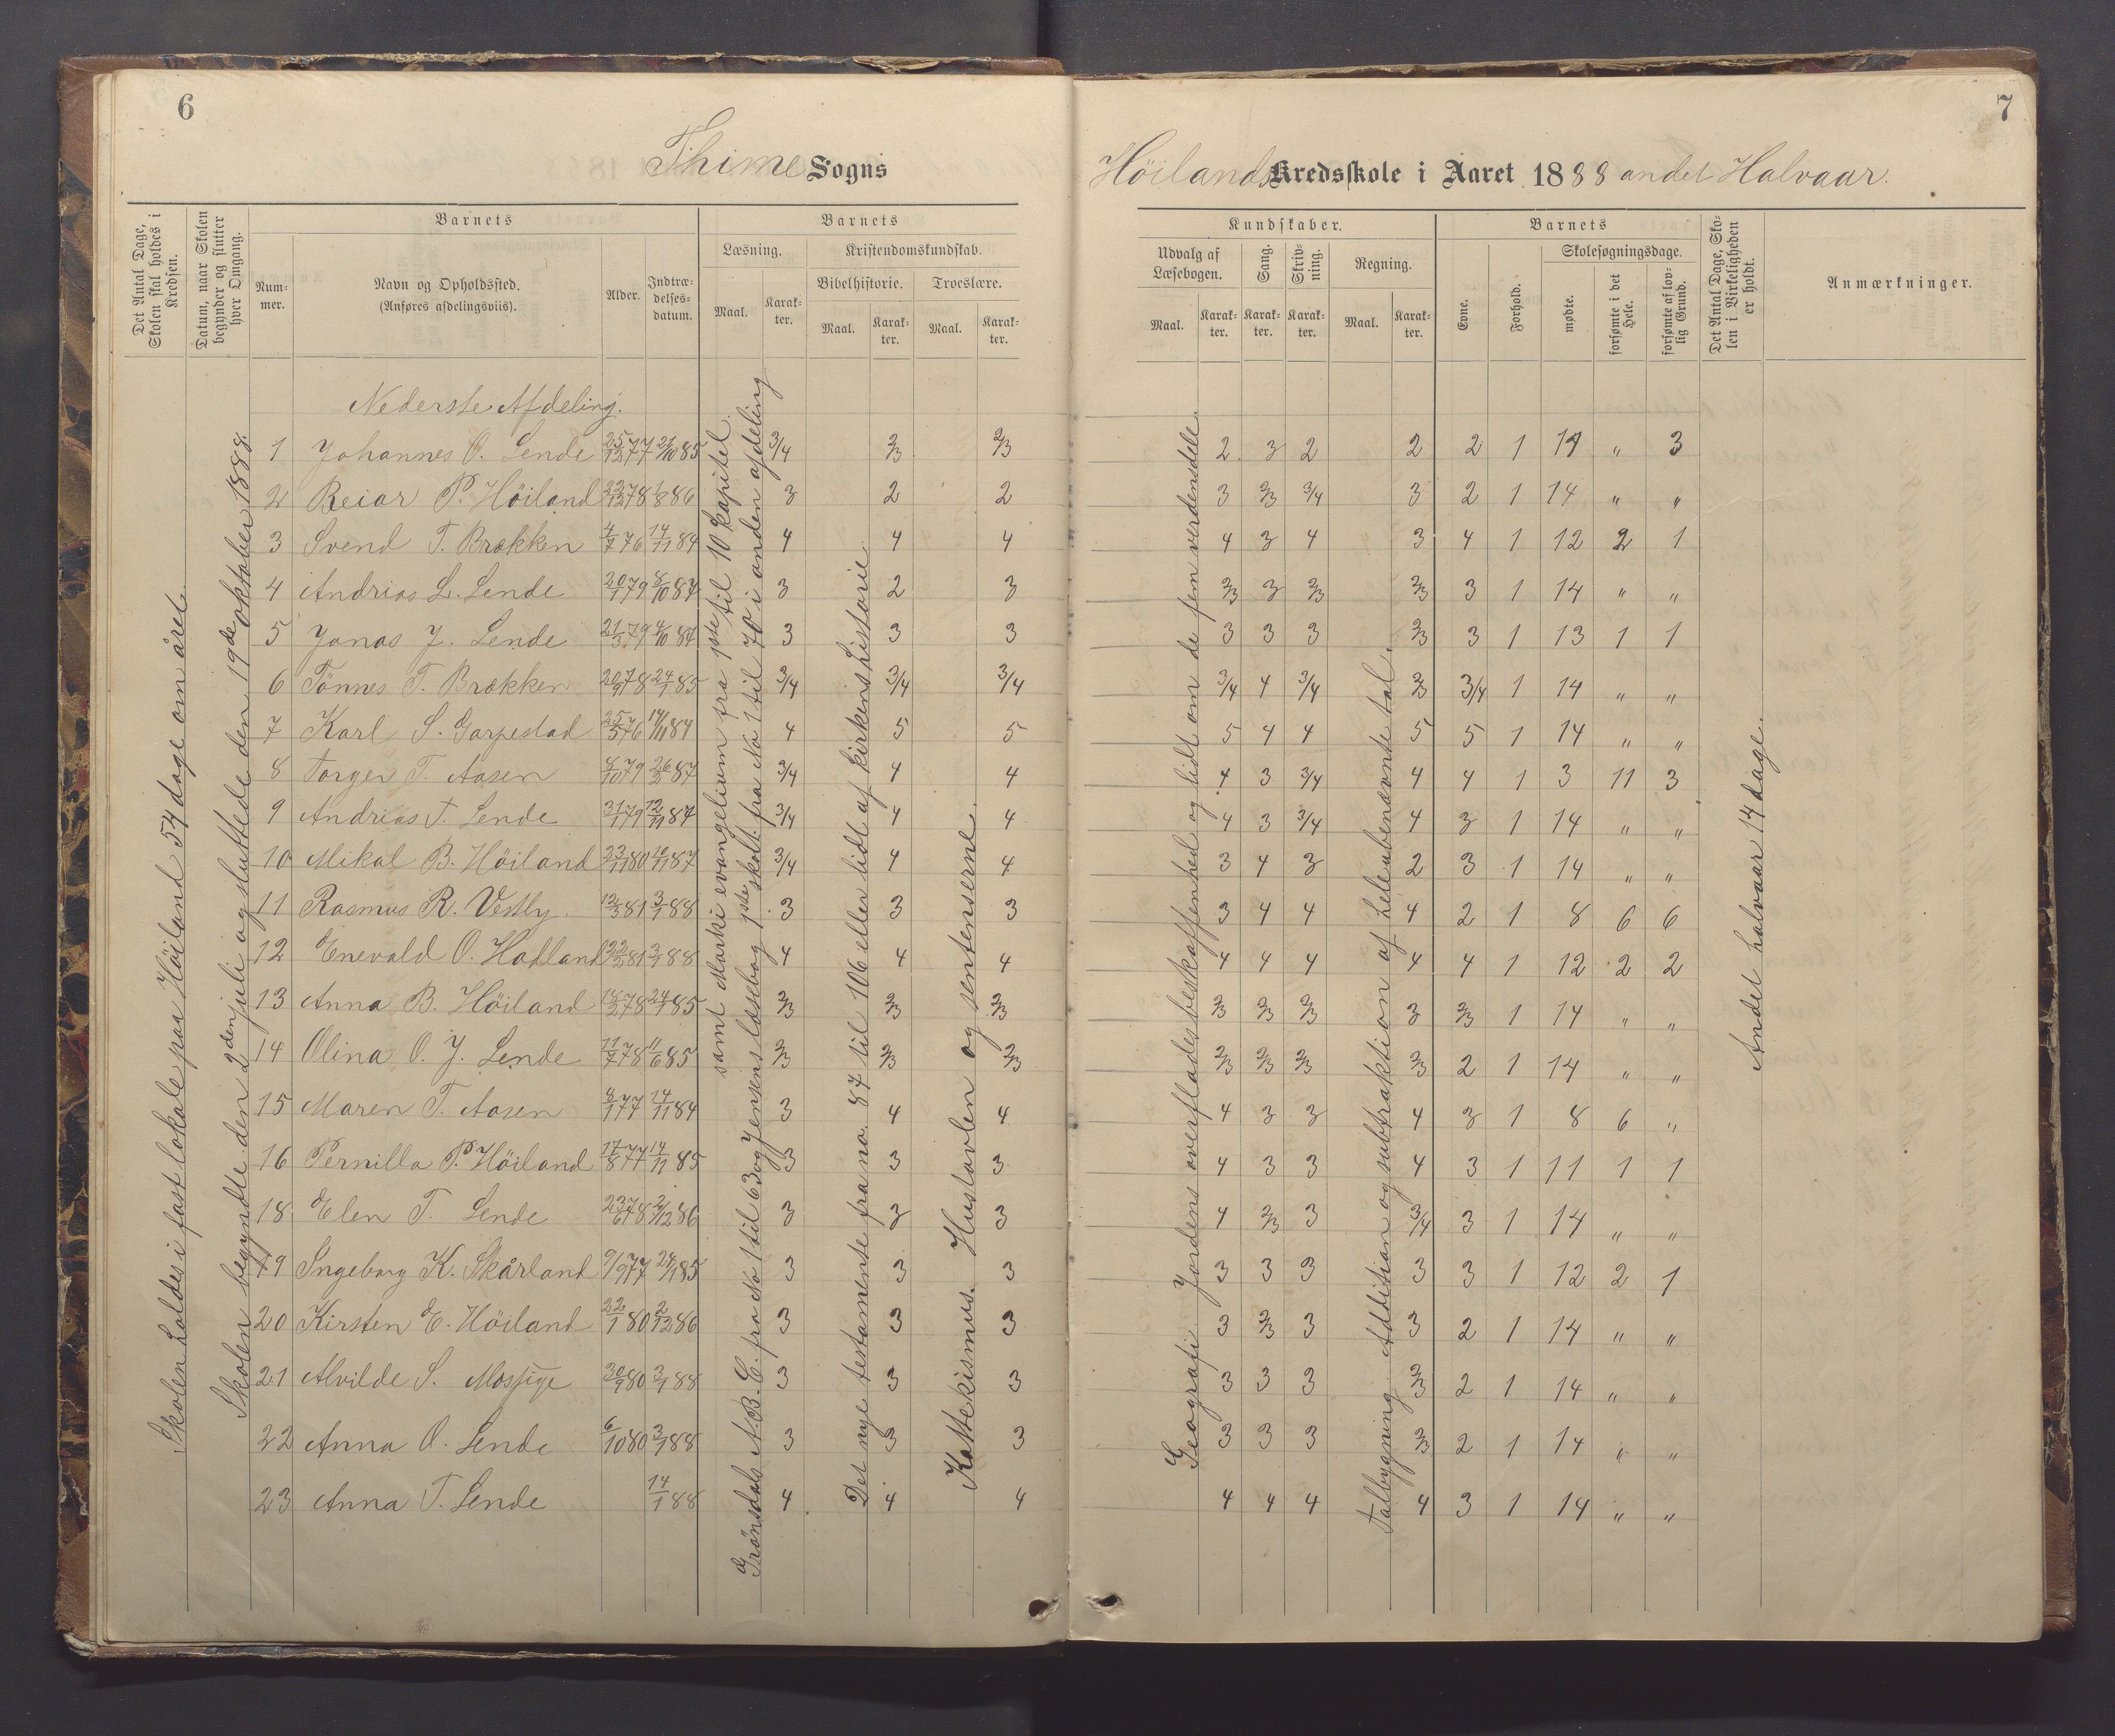 6
Thime Sogns
Det Antal Dage, Skolen skal holdes i Kredsen.
Datum, naar Skolen begynder og slutter hver Omgang.
Barnets
Num-mer.
Navn og Opholdssted.
(Anføres afdelingsviis).
Alder.
Indtræ-delses-datum.
Barnets
Læsning.
Kristendomskundskab.
Bibelhistorie.
Troeslære.
Maal.
Karak-ter.
Maal.
Karak-ter.
Maal.
Karak-ter.
Skolen holdes i fast lokale paa Höiland 54 dage om året.
Skolen begyndte den 2den juli og sluttede den 19de oktober 1888.
Grönsdals A.B.C. fra No 1 til 63 og Jensens læsebog 1ste skolt. fra No 1 til 70 i anden afdeling
samt Marki evangelium fra 1ste til 10 kapitel.
Det nye testamente fra no. 87 til 106 eller lidt af kirkens historie.
Kattekismus. Hustavlen og sentenserne.
Nederste Afdeling.
1 Johannes O. Lende 25/12 77 21/10 85 3/4 2/3 2/3
2 Reiar P. Höiland 22/12 78 1/8 86 3 2 2
3 Svend T. Brækken 4/7 76 14/11 84 4 4 4
4 Andrias L. Lende 20/1 79 8/10 87 3 2 3
5 Jonas J. Lende 21/3 79 4/10 84 3 3 3
6 Tönnes T. Brækken 20/9 78 24/1 85 3/4 3/4 3/4
7 Karl S. Garpestad 25/5 76 14/11 84 4 5 5
8 Torger T. Aasen 8/10 79 26/2 87 3/4 4 4
9 Andrias T. Lende 31/1 79 12/11 87 3/4 4 4
10 Mikal B. Höiland 23/11 80 10/11 87 3/4 4 4
11 Rasmus R. Vestly 12/3 81 3/1 88 3 3 3
12 Enevald O. Hadland 22/2 81 3/1 88 4 4 4
13 Anna B. Höiland 18/2 78 24/1 85 2/3 2/3 2/3
14 Olina O. J. Lende 11/7 78 11/6 85 2/3 2/3 2/3
15 Maren T. Aasen 8/1 77 14/11 84 3 4 4
16 Pernilla P. Höiland 17/8 77 14/11 85 3 3 3
18 Elen T. Lende 23/6 78 2/12 86 3 3 3
19 Ingeborg K. Skårland 9/9 77 24/1 85 3 3 3
20 Kirsten E. Höiland 22/1 80 2/12 86 3 3 3
21 Alvilde S. Mossige 30/9 80 3/1 88 3 3 3
22 Anna O. Lende 6/10 80 3/1 88 3 3 3
23 Anna T. Lende 14/1 88 4 4 4
7
Höilands Kredsskole i Aaret 1888 andet Halvaar.
Kundskaber.
Udvalg af Læsebogen.
Sang.
Skriv-ning.
Regning.
Maal.
Karak-ter.
Karak-ter.
Karak-ter.
Maal.
Karak-ter.
Barnets
Evne.
Forhold.
Skolesøgningsdage.
mødte.
forsømte i det Hele.
forsømte af lov-lig Grund.
Det Antal Dage, Sko-len i Virkeligheden er holdt.
Anmærkninger.
Geografi. Jordens overflades beskaffenhed og lidt om de fem verdensdele.
Talbygning. Addition og subtraktion af hele ubenævnte tal.
Andet halvaar 14 dage.
2 3 2 2 2 1 14 " 3
3 2/3 3/4 3 2 1 14 " "
4 3 4 3 4 1 12 2 1
2/3 3 2/3 2/3 3 1 14 " "
3 3 3 2/3 3 1 13 1 1
3/4 4 3/4 2/3 3/4 1 14 " "
5 4 4 5 5 1 14 " "
4 3 3/4 4 4 1 3 11 3
4 3 3/4 4 3 1 14 " "
3 4 3 2 3 1 14 " "
3 4 4 4 2 1 8 6 6
4 4 4 4 4 1 12 2 2
2/3 2/3 2/3 3 2/3 1 14 " "
2/3 2/3 2/3 2/3 2 1 14 " "
4 3 3 4 3 1 8 6 "
4 3 3 4 3 1 11 1 1
4 2/3 3 3/4 3 1 14 " "
3 3 3 3 3 1 12 2 1
3 2/3 3 3 2 1 14 " "
3 3 3 2/3 2 1 14 " "
3 3 3 2/3 2 1 14 " "
4 4 4 4 3 1 14 " "